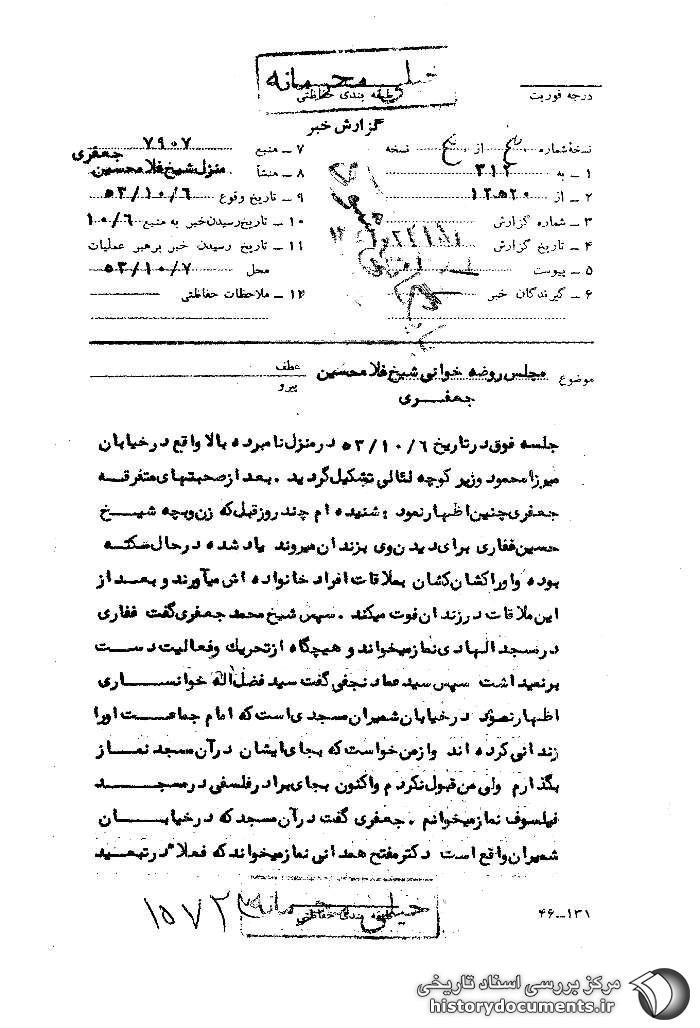 خیلی محرمانه
طبقه بندی حفاظتی
درجه فوریت
گزارش خبر
نسخهٔ شماره از نسخه
۱ ـ به ۳۱۲
۲ ـ از ۱۲ﻫ۲۰
۳ ـ شماره گزارش
۴ ـ تاریخ گزارش
۵ ـ پیوست
۶ ـ گیرندگان خبر
۷ ـ منبع ۷۹۰۷
۸ ـ منشأ منزل شیخ غلامحسین جعفری
۹ ـ تاریخ وقوع ۵۳/۱۰/۶
۱۰ ـ تاریخ رسیدن خبر به منبع ۱۰/۶
۱۱ ـ تاریخ رسیدن خبر برهبر عملیات
محل ۵۳/۱۰/۷
۱۲ ـ ملاحظات حفاظتی
موضوع مجلس روضه خوانی شیخ غلامحسین
جعفری
عطف
پیرو
جلسه فوق در تاریخ ۵۳/۱۰/۶ در منزل نامبرده بالا واقع در خیابان
میرزا محمود وزیر کوچه لئالی تشکیل گردید . بعد از صحبتهای متفرقه
جعفری چنین اظهار نمود : شنیده ام چند روز قبل که زن و بچه شیخ
حسین غفاری برای دیدن وی بزندان میروند یاد شده در حال سکته
بوده و او را کشان کشان بملاقات افراد خانواده اش میآورند و بعد از
این ملاقات در زندان فوت میکند . سپس شیخ محمد جعفری گفت غفاری
در مسجد الهادی نماز میخواند و هیچگاه از تحریک و فعالیت دست
بر نمیداشت سپس سید عماد نجفی گفت سید فضل اله خوانساری
اظهار نمود در خیابان شمیران مسجدی است که امام جماعت او را
زندانی کرده اند و از من خواست که بجای ایشان در آن مسجد نماز
بگذارم ولی من قبول نکردم و اکنون بجای برادر فلسفی در مسجد
فیلسوف نماز میخوانم . جعفری گفت در آن مسجد که در خیابان
شمیران واقع است دکتر مفتح همدانی نماز میخواند که فعلا" در تبعید
خیلی محرمانه
طبقه بندی حفاظتی
۱۵۷۲۳
۴۶ـ۱۳۱
مرکز بررسی اسناد تاریخی
historydocuments.ir